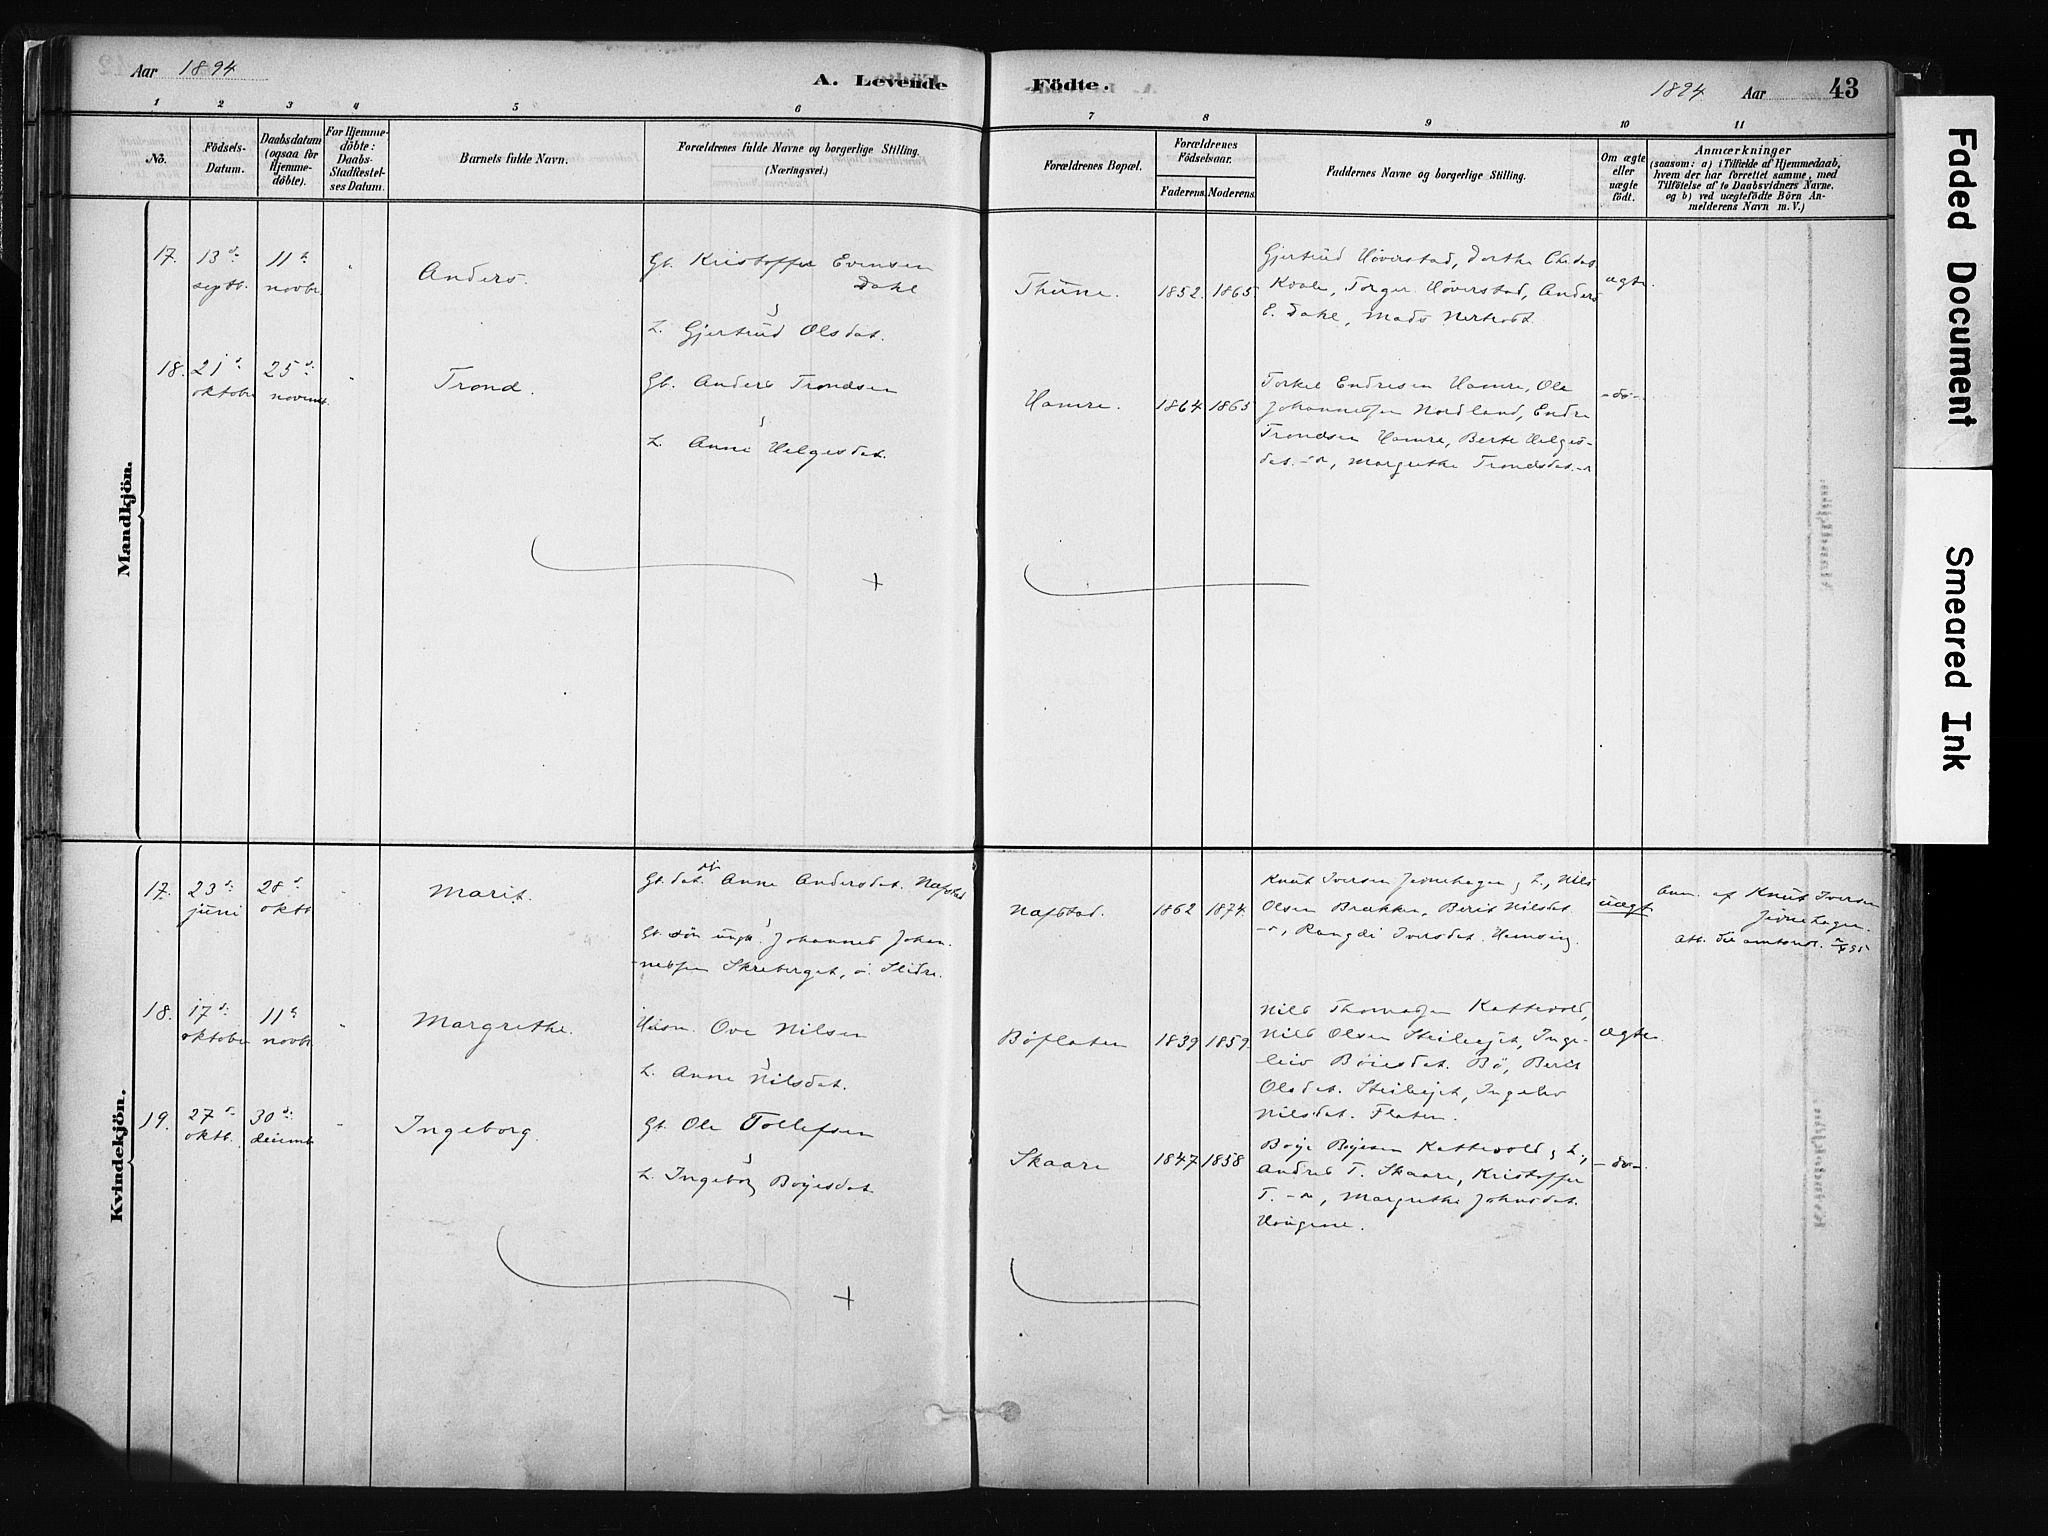 Aar 1894
A. Levende Födte.
1894 Aar 43
1 2 3 4 5 6 7 8 9 10 11
No.
Födsels-
Datum.
Daabsdatum
(ogsaa for
Hjemme-
döbte).
For Hjemme-
döbte:
Daabs-
Stadfæstel-
ses Datum.
Barnets fulde Navn.
Forældrenes fulde Navne og borgerlige Stilling.
(Næringsvei.)
Forældrenes Bopæl.
Forældrenes
Födselsaar.
Faderens. Moderens.
Faddernes Navne og borgerlige Stilling.
Om ægte
eller
uægte
födt.
Anmærkninger
(saasom: a) i Tilfælde af Hjemmedaab,
hvem der har forrettet samme, med
Tilföielse af to Daabsvidners Navne.
og b) ved uægtefödte Börn An-
melderens Navn m. V.)
Mandkjön.
17. 13de septb. 11te novbr. Anders.
Gb. Kristoffer Evensen
Dahl
&
h. Gjertrud Olsdat.
Thune. 1852. 1865.
Gjertrud Høverstad, Dorthe Chrdat.
Kvale, Torger Høverstad, Anders
E. Dahl, Mads
ægte.
18. 21de oktober 25de novemb. Trond.
Gb. Anders Trondsen
&
h. Anne Helgesdat.
Hamre. 1864 1865
Torkel Endresen Hamre, Ole
Johannessen Nordland, Endre
Trondsen Hamre, Berte Helges-
dat. -"-, Margrethe Trondsdat. -"-
-do-.
Kvindekjön.
17. 23de juni 28de oktb. Marit.
Gb.dat. Anne Andersdat. Nafstad
&
Gb. søn ungk. Johannes Johan-
nessen Skreberget, ø. Slidre.
Nafstad. 1862 1874.
Knut Iversen Jevnehagen & h., Nils
Olsen Brække, Berit Nilsdat.
-"-, Rangdi Iversdat. Hemsing.
uægte
Anm. af Knut Iversen
Jevnehagen.
Att. til amtm.
18. 17de oktober 11te novbr. Margrethe.
Husm. Ove Nilsen
&
h. Anne Nilsdat.
Bøflaten 1839 1859.
Nils Thomassen Kattevold,
Nils Olsen Steiliejet, Inge-
leiv Bøiesdat. Bø, Berit
Olsdat. Steiliejet, Ingelev
Nilsdat. Flaten.
ægte.
19. 27de oktb. 30de decemb. Ingeborg.
Gb. Ole Tollefsen
&
h. Ingeborg Bøyesdat.
Skaare 1847 1858
Bøye Bøyesen Kattevold & h.,
Andres T. Skaare, Kristoffer
T. -"-, Margrethe Johnsdat.
Haugene.
-do-.
Faded Document
Smeared Ink